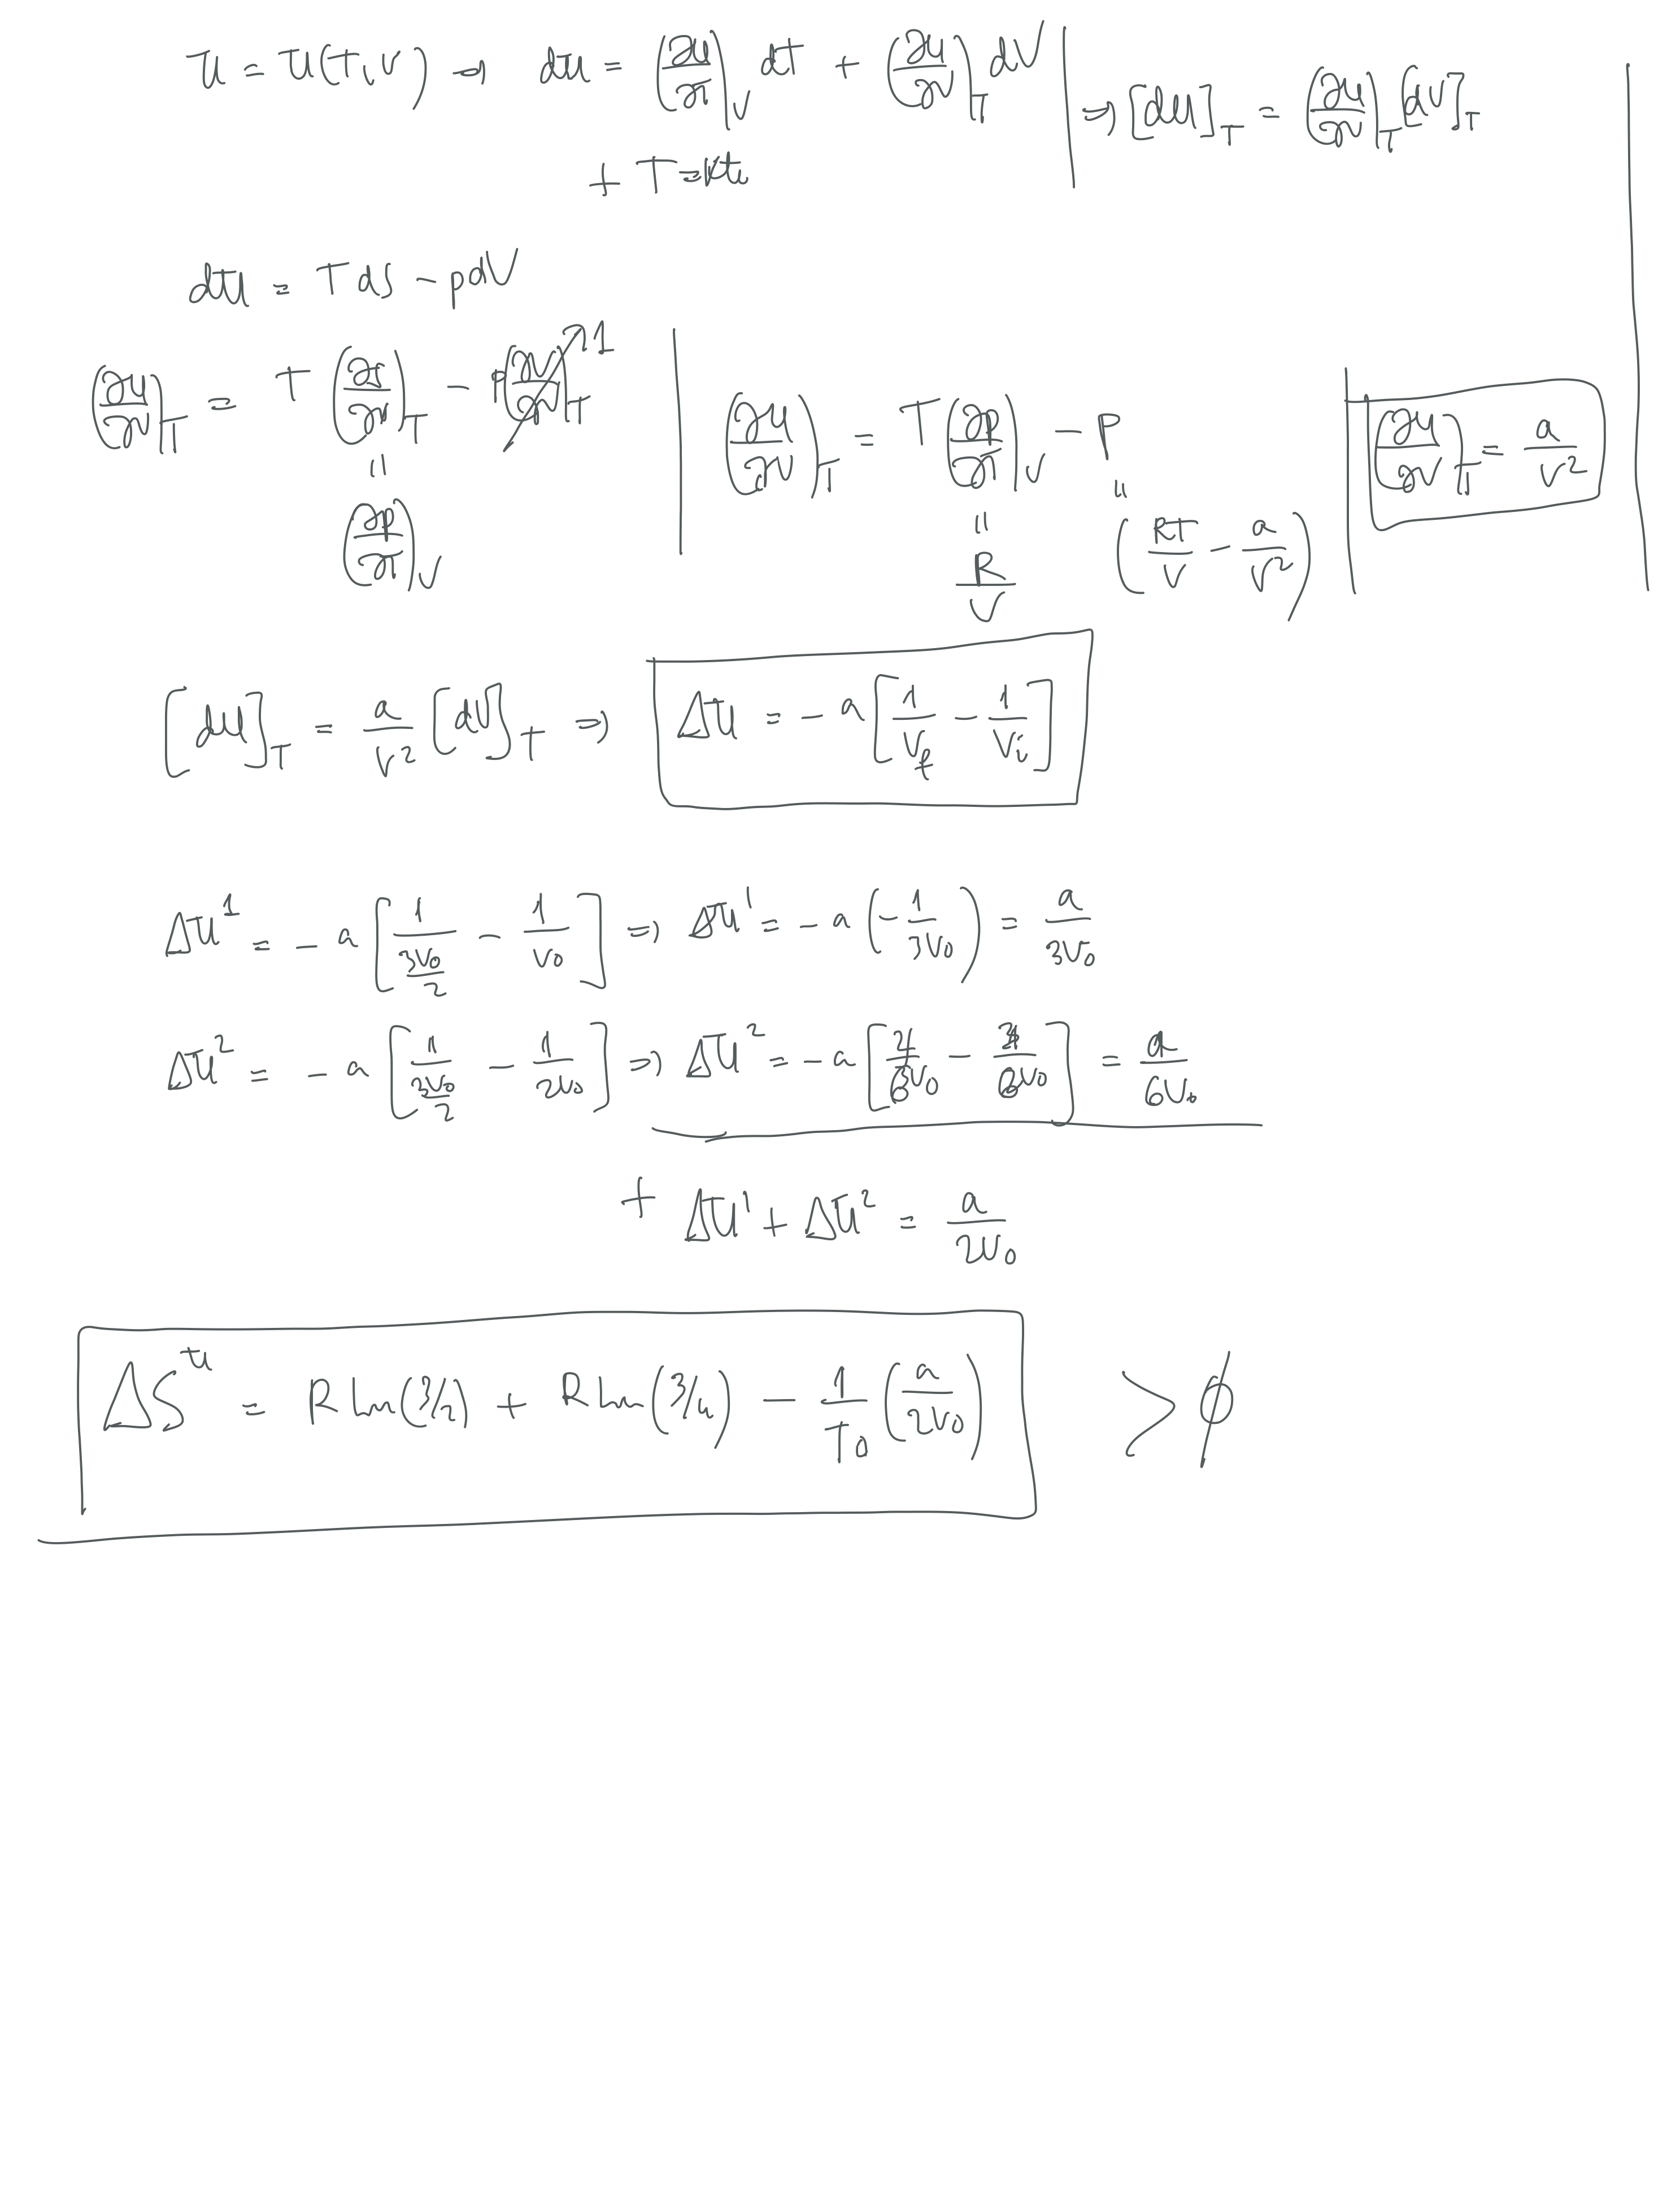 U = U(T,V) → dU = (∂U/∂T)_V dT + (∂U/∂V)_T dV | ⇒ [dU]_T = (∂U/∂V)_T [dV]_T
+ T = kte
dU = T dS - p dV
(∂U/∂V)_T = T (∂S/∂V)_T - p (∂V/∂V)_T ↗1 | (∂U/∂V)_T = T (∂p/∂T)_V - P | (∂U/∂V)_T = a/V²
= (∂p/∂T)_V
= R/V
= (RT/V - a/V²)
[dU]_T = a/V² [dV]_T ⇒ ΔU = - a [1/V_f - 1/V_i]
ΔU¹ = - a [1/(3V₀/2) - 1/V₀] ⇒ ΔU¹ = - a (- 1/3V₀) = a/3V₀
ΔU² = - a [1/(3V₀/2) - 1/2V₀] ⇒ ΔU² = - a [4/6V₀ - 3/6V₀] = a/6V₀
+ ΔU¹ + ΔU² = a/2V₀
ΔS^U = R ln(3/2) + R ln(3/4) - 1/T₀ (a/2V₀) > ∅